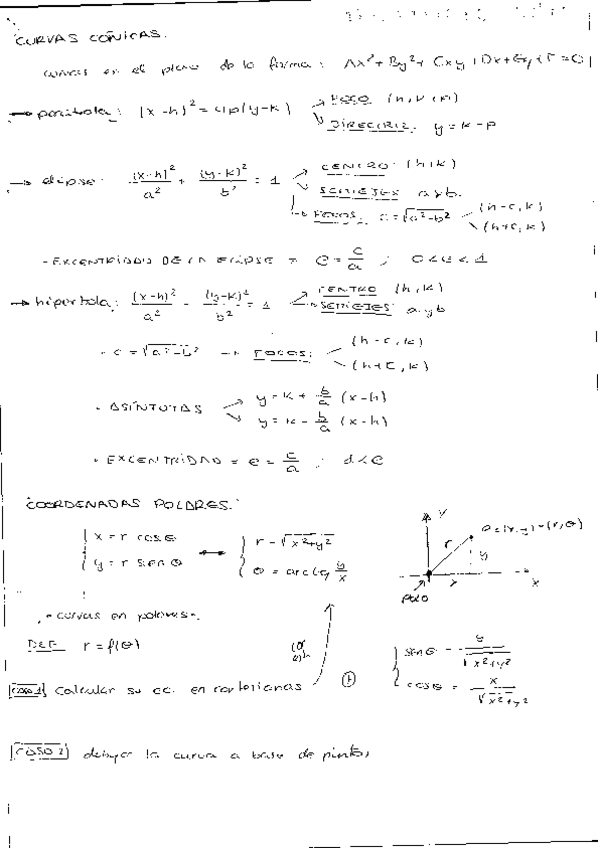 CURVAS CÓNICAS.
curvas en el plano de la forma: Ax² + By² + Cxy + Dx + Ey + F = 0
→ parábola: (x-h)² = 4p(y-k)
FOCO: (h, k+p)
DIRECTRIZ: y = k-p
→ elipse: (x-h)²/a² + (y-k)²/b² = 1
CENTRO: (h,k)
SEMIEJES a y b.
FOCOS: c = √a²-b²
(h-c, k)
(h+c, k)
- EXCENTRICIDAD DE LA ELIPSE = e = c/a ; 0<e<1
→ hipérbola: (x-h)²/a² - (y-k)²/b² = 1
CENTRO (h,k)
SEMIEJES a y b
- c = √a²-b² → FOCOS:
(h-c, k)
(h+c, k)
- ASÍNTOTAS
y = k + b/a (x-h)
y = k - b/a (x-h)
- EXCENTRIDAD = e = c/a ; d<e
COORDENADAS POLARES.
x = r cosθ
y = r senθ
↔
r = √x²+y²
θ = arctg y/x
y
P=(x,y)=(r,θ)
r
y
x
x
POLO
- curvas en polares -
DEF r = f(θ)
senθ = y/√x²+y²
cosθ = x/√x²+y²
CASO 1 Calcular su ec. en cartesianas
CASO 2 dibujar la curva a base de puntos